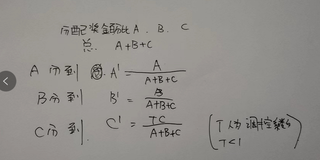 分配奖金的比A、B、C
总 A+B+C
A 分到 A' = A/(A+B+C)
B 分到 B' = B/(A+B+C)
C 分到 C' = TC/(A+B+C)
(T人为调控
T<1